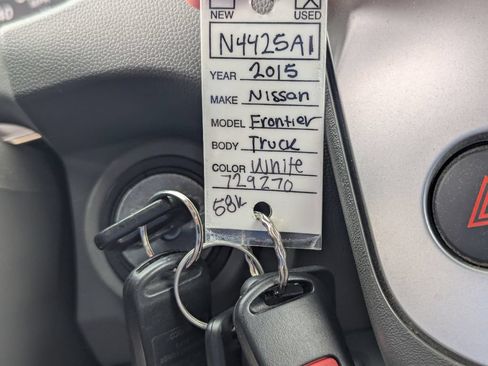 NEW USED
N4425A1
YEAR 2015
MAKE Nissan
MODEL Frontier
BODY Truck
COLOR White
729270
58k